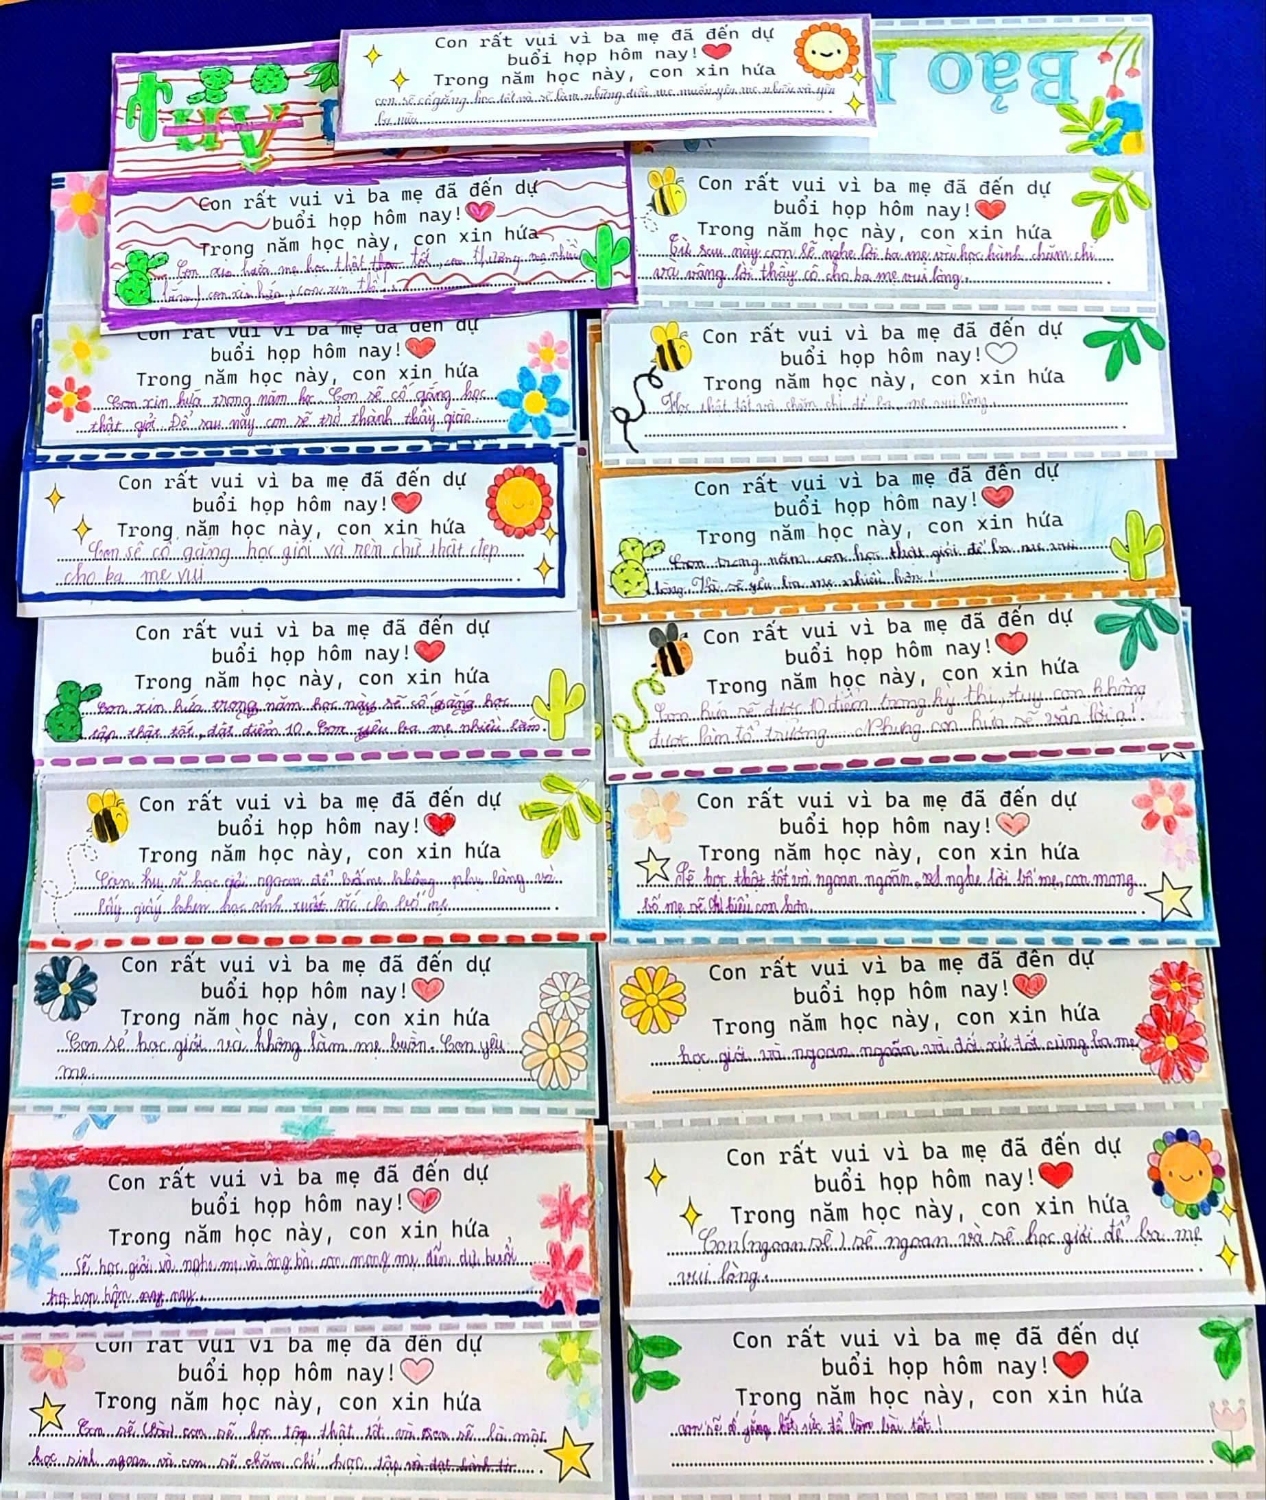 Con rất vui vì ba mẹ đã đến dự
buổi họp hôm nay!
Trong năm học này, con xin hứa
con sẽ cố gắng học tốt và sẽ làm những điều mẹ muốn yêu mẹ nhiều và yêu
ba nữa
Bảo
Con rất vui vì ba mẹ đã đến dự
buổi họp hôm nay!
Trong năm học này, con xin hứa
Con xin hứa mẹ học thật tốt, con thương mẹ nhiều
lắm) con xin hứa, con xin thề!
Con rất vui vì ba mẹ đã đến dự
buổi họp hôm nay!
Trong năm học này, con xin hứa
Từ sau này con sẽ nghe lời ba mẹ và học hành chăm chỉ
và vâng lời thầy cô cho ba mẹ vui lòng.
Con rất vui vì ba mẹ đã đến dự
buổi họp hôm nay!
Trong năm học này, con xin hứa
Con xin hứa trong năm học. Con sẽ cố gắng học
thật giỏi. Để sau này con sẽ trở thành thầy giáo.
Con rất vui vì ba mẹ đã đến dự
buổi họp hôm nay!
Trong năm học này, con xin hứa
Học thật tốt và chăm chỉ để ba, mẹ vui lòng.
Con rất vui vì ba mẹ đã đến dự
buổi họp hôm nay!
Trong năm học này, con xin hứa
Con sẽ cố gắng học giỏi và rèn chữ thật đẹp
cho ba mẹ vui
Con rất vui vì ba mẹ đã đến dự
buổi họp hôm nay!
Trong năm học này, con xin hứa
Con trong năm con học thật giỏi để ba mẹ vui
lòng. Thì sẽ yêu ba mẹ nhiều hơn!
Con rất vui vì ba mẹ đã đến dự
buổi họp hôm nay!
Trong năm học này, con xin hứa
Con xin hứa trong năm học này sẽ cố gắng học
tập thật tốt, đạt điểm 10. Con yêu ba mẹ nhiều lắm.
Con rất vui vì ba mẹ đã đến dự
buổi họp hôm nay!
Trong năm học này, con xin hứa
Con hứa sẽ được 10 điểm trong kỳ thi, tuy con không
được làm tổ trưởng. Nhưng con hứa sẽ
Con rất vui vì ba mẹ đã đến dự
buổi họp hôm nay!
Trong năm học này, con xin hứa
sẽ học giỏi ngoan để bố mẹ không phụ lòng và
lấy giấy khen học sinh xuất sắc cho bố mẹ
Con rất vui vì ba mẹ đã đến dự
buổi họp hôm nay!
Trong năm học này, con xin hứa
Sẽ học thật tốt và ngoan ngoãn, nghe lời bố mẹ, con mong
bố mẹ sẽ con hơn.
Con rất vui vì ba mẹ đã đến dự
buổi họp hôm nay!
Trong năm học này, con xin hứa
Con sẽ học giỏi và không làm mẹ buồn. Con yêu
mẹ.
Con rất vui vì ba mẹ đã đến dự
buổi họp hôm nay!
Trong năm học này, con xin hứa
học giỏi và ngoan ngoãn và đối xử tốt cùng ba mẹ
Con rất vui vì ba mẹ đã đến dự
buổi họp hôm nay!
Trong năm học này, con xin hứa
Sẽ học giỏi và nghe mẹ và ông bà con mong mẹ đến dự buổi
họp hôm nay
Con rất vui vì ba mẹ đã đến dự
buổi họp hôm nay!
Trong năm học này, con xin hứa
Con (ngoan sẽ) sẽ ngoan và sẽ học giỏi để ba mẹ
vui lòng.
Con rất vui vì ba mẹ đã đến dự
buổi họp hôm nay!
Trong năm học này, con xin hứa
Con sẽ con sẽ học tập thật tốt và con sẽ là một
học sinh ngoan và con sẽ chăm chỉ học tập
Con rất vui vì ba mẹ đã đến dự
buổi họp hôm nay!
Trong năm học này, con xin hứa
con sẽ cố gắng hết sức để làm bài tốt!